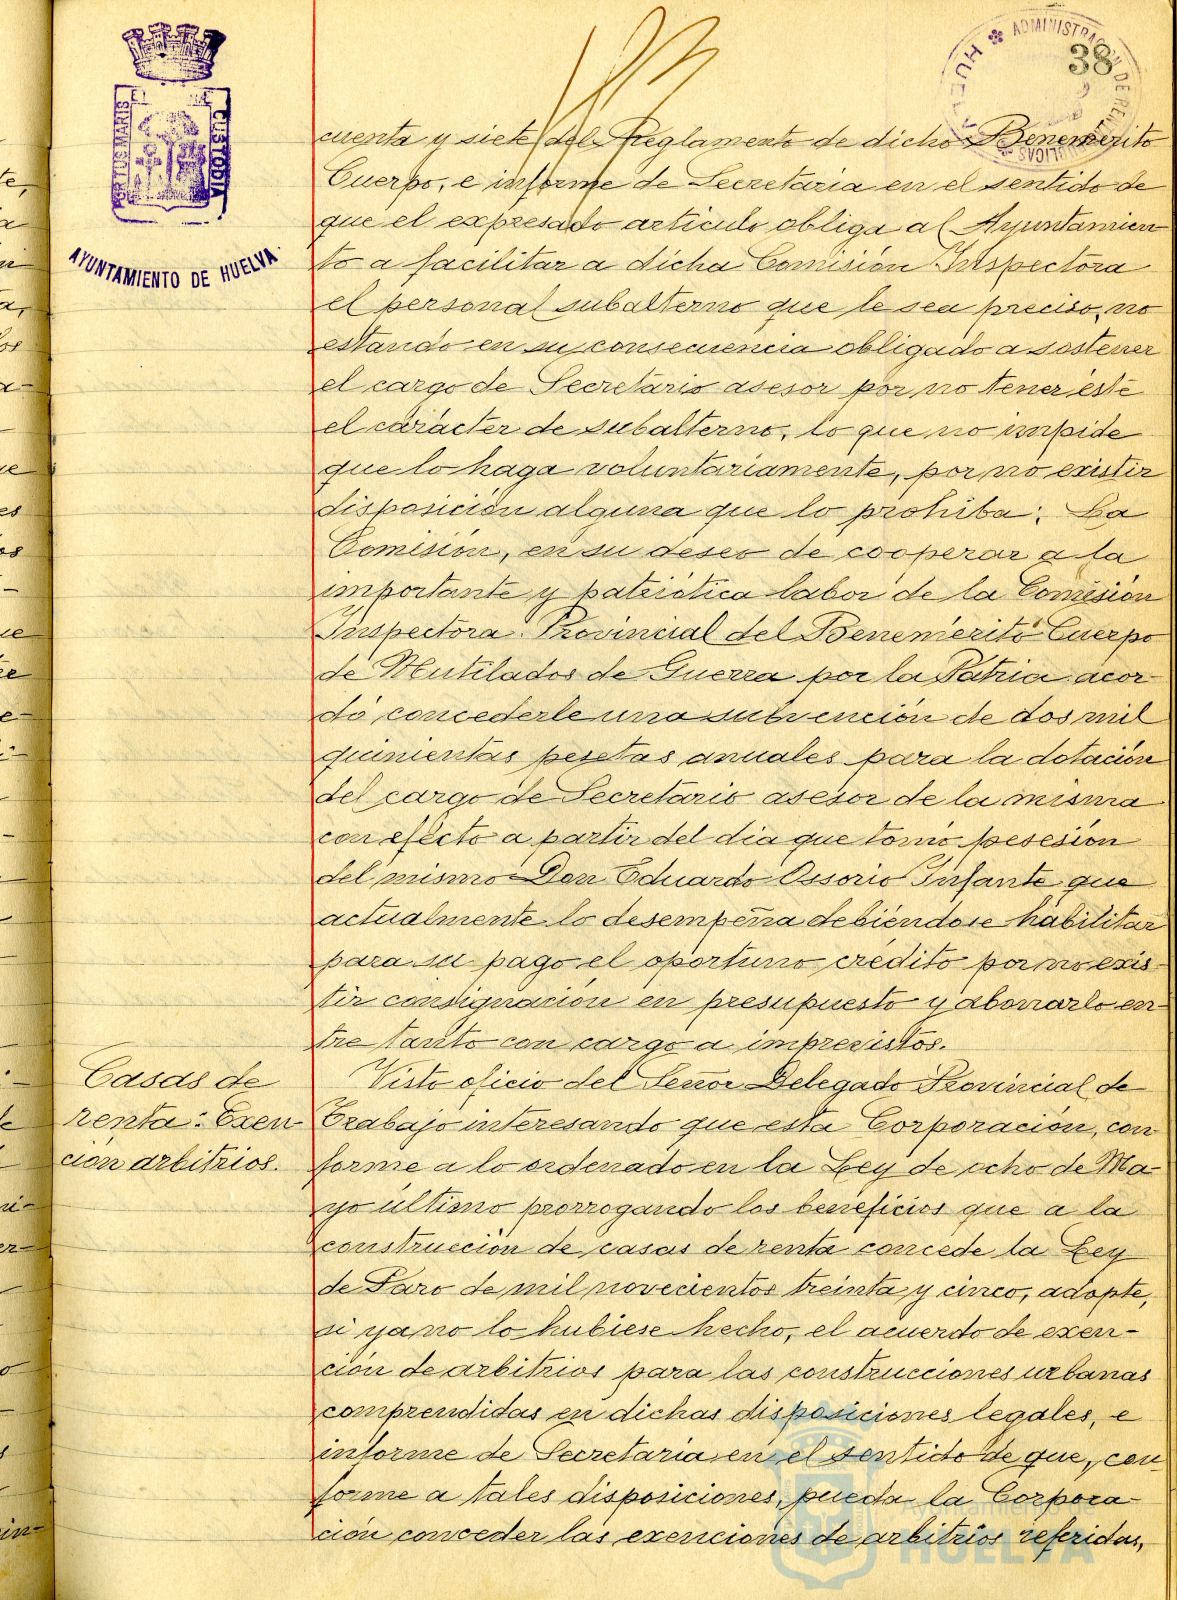 38
ADMINISTRACIÓN DE RENTAS PÚBLICAS
HUELVA
PORTUS MARIS ET TERRAE CUSTODIA
AYUNTAMIENTO DE HUELVA
cuenta y siete del Reglamento de dicho Benemérito
Cuerpo, e informe de Secretaria en el sentido de
que el expresado articulo obliga al Ayuntamien
to a facilitar a dicha Comisión Inspectora
el personal subalterno que le sea preciso, no
estando en su consecuencia obligado a sostener
el cargo de Secretario asesor por no tener éste
el carácter de subalterno, lo que no impide
que lo haga voluntariamente, por no existir
disposición alguna que lo prohiba; La
Comisión, en su deseo de cooperar a la
importante y patriótica labor de la Comisión
Inspectora Provincial del Benemérito Cuerpo
de Mutilados de Guerra por la Patria acor-
dó concederle una subvención de dos mil
quinientas pesetas anuales para la dotación
del cargo de Secretario asesor de la misma
con efecto a partir del dia que tomó pesesión
del mismo Don Eduardo Ossorio Infante que
actualmente lo desempeña debiéndose habilitar
para su pago el oportuno crédito por no exis-
tir consignación en presupuesto y abonarlo en-
tre tanto con cargo a imprevistos.
Casas de
renta: Exen-
ción arbitrios.
Visto oficio del Señor Delegado Provincial de
Trabajo interesando que esta Corporación, con
forme a lo ordenado en la Ley de ocho de Ma-
yo último prorrogando los beneficios que a la
construcción de casas de renta concede la Ley
de Paro de mil novecientos treinta y cinco, adopte,
si ya no lo hubiese hecho, el acuerdo de exen-
ción de arbitrios para las construcciones urbanas
comprendidas en dichas disposiciones legales, e
informe de Secretaria en el sentido de que, con-
forme a tales disposiciones, pueda la Corpora-
ción conceder las exenciones de arbitrios referidas,
Ayuntamiento de
HUELVA